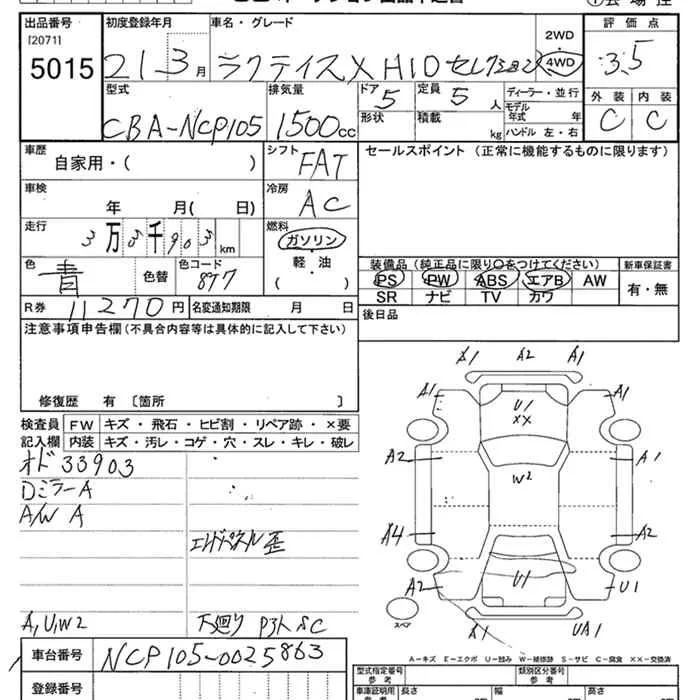 出品番号 初度登録年月 車名・グレード 2WD 評価点
[2071]
5015 21 3月 ラクティス X HID セレクション 4WD 3.5
型式 排気量 ドア 定員 ディーラー・並行 外装 内装
CBA-NCP105 1500cc 5 5人 モデル年式 年 C C
形状 積載 kg ハンドル 左・右
車歴 シフト セールスポイント (正常に機能するものに限ります)
自家用・( ) FAT
車検 冷房
年 月( 日) AC
走行 燃料
3万 3千903km ガソリン
軽・油
( )
色 色替 色コード 装備品 (純正品に限り○をつけてください) 新車保証書
青 8T7 PS PW ABS エアB AW 有・無
SR ナビ TV カワ
R券 11270円 名変通知期限 月 日 後日品
注意事項申告欄(不具合内容等は具体的に記入して下さい)
修復歴 有 〔箇所 〕
検査員 FW キズ・飛石・ヒビ割・リペア跡・×要
記入欄 内装 キズ・汚レ・コゲ・穴・スレ・キレ・破レ
オド 33903
Dミラー A
A/W A
歪
A,U,W2 下廻り P3ト SC
X1 A2 A1
A1 U1 XX A1
A2 W2 A1
A4 A2
A2 U1 U1
スペア X1 UA1
A-キズ E-エクボ U-凹み W-補修跡 S-サビ C-腐食 XX-交換済
車台番号 NCP105-0025863
型式指定番号 参考 類別区分番号 参考
登録番号 車庫証明用 参考 長さ 幅 高さ